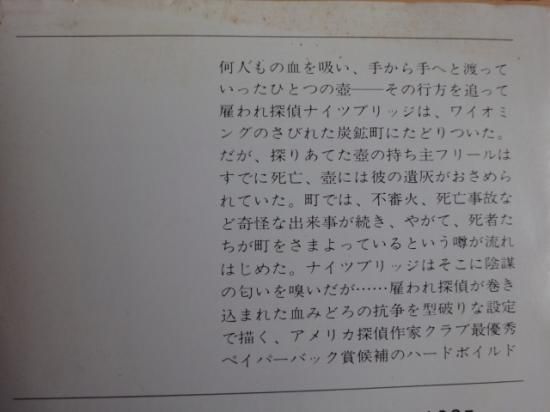 何人もの血を吸い、手から手へと渡って
いったひとつの壺――その行方を追って
雇われ探偵ナイツブリッジは、ワイオミ
ングのさびれた炭鉱町にたどりついた。
だが、探りあてた壺の持ち主フリールは
すでに死亡、壺には彼の遺灰がおさめら
れていた。町では、不審火、死亡事故な
ど奇怪な出来事が続き、やがて、死者た
ちが町をさまよっているという噂が流れ
はじめた。ナイツブリッジはそこに陰謀
の匂いを嗅いだが……雇われ探偵が巻き
込まれた血みどろの抗争を型破りな設定
で描く、アメリカ探偵作家クラブ最優秀
ペイパーバック賞候補のハードボイルド